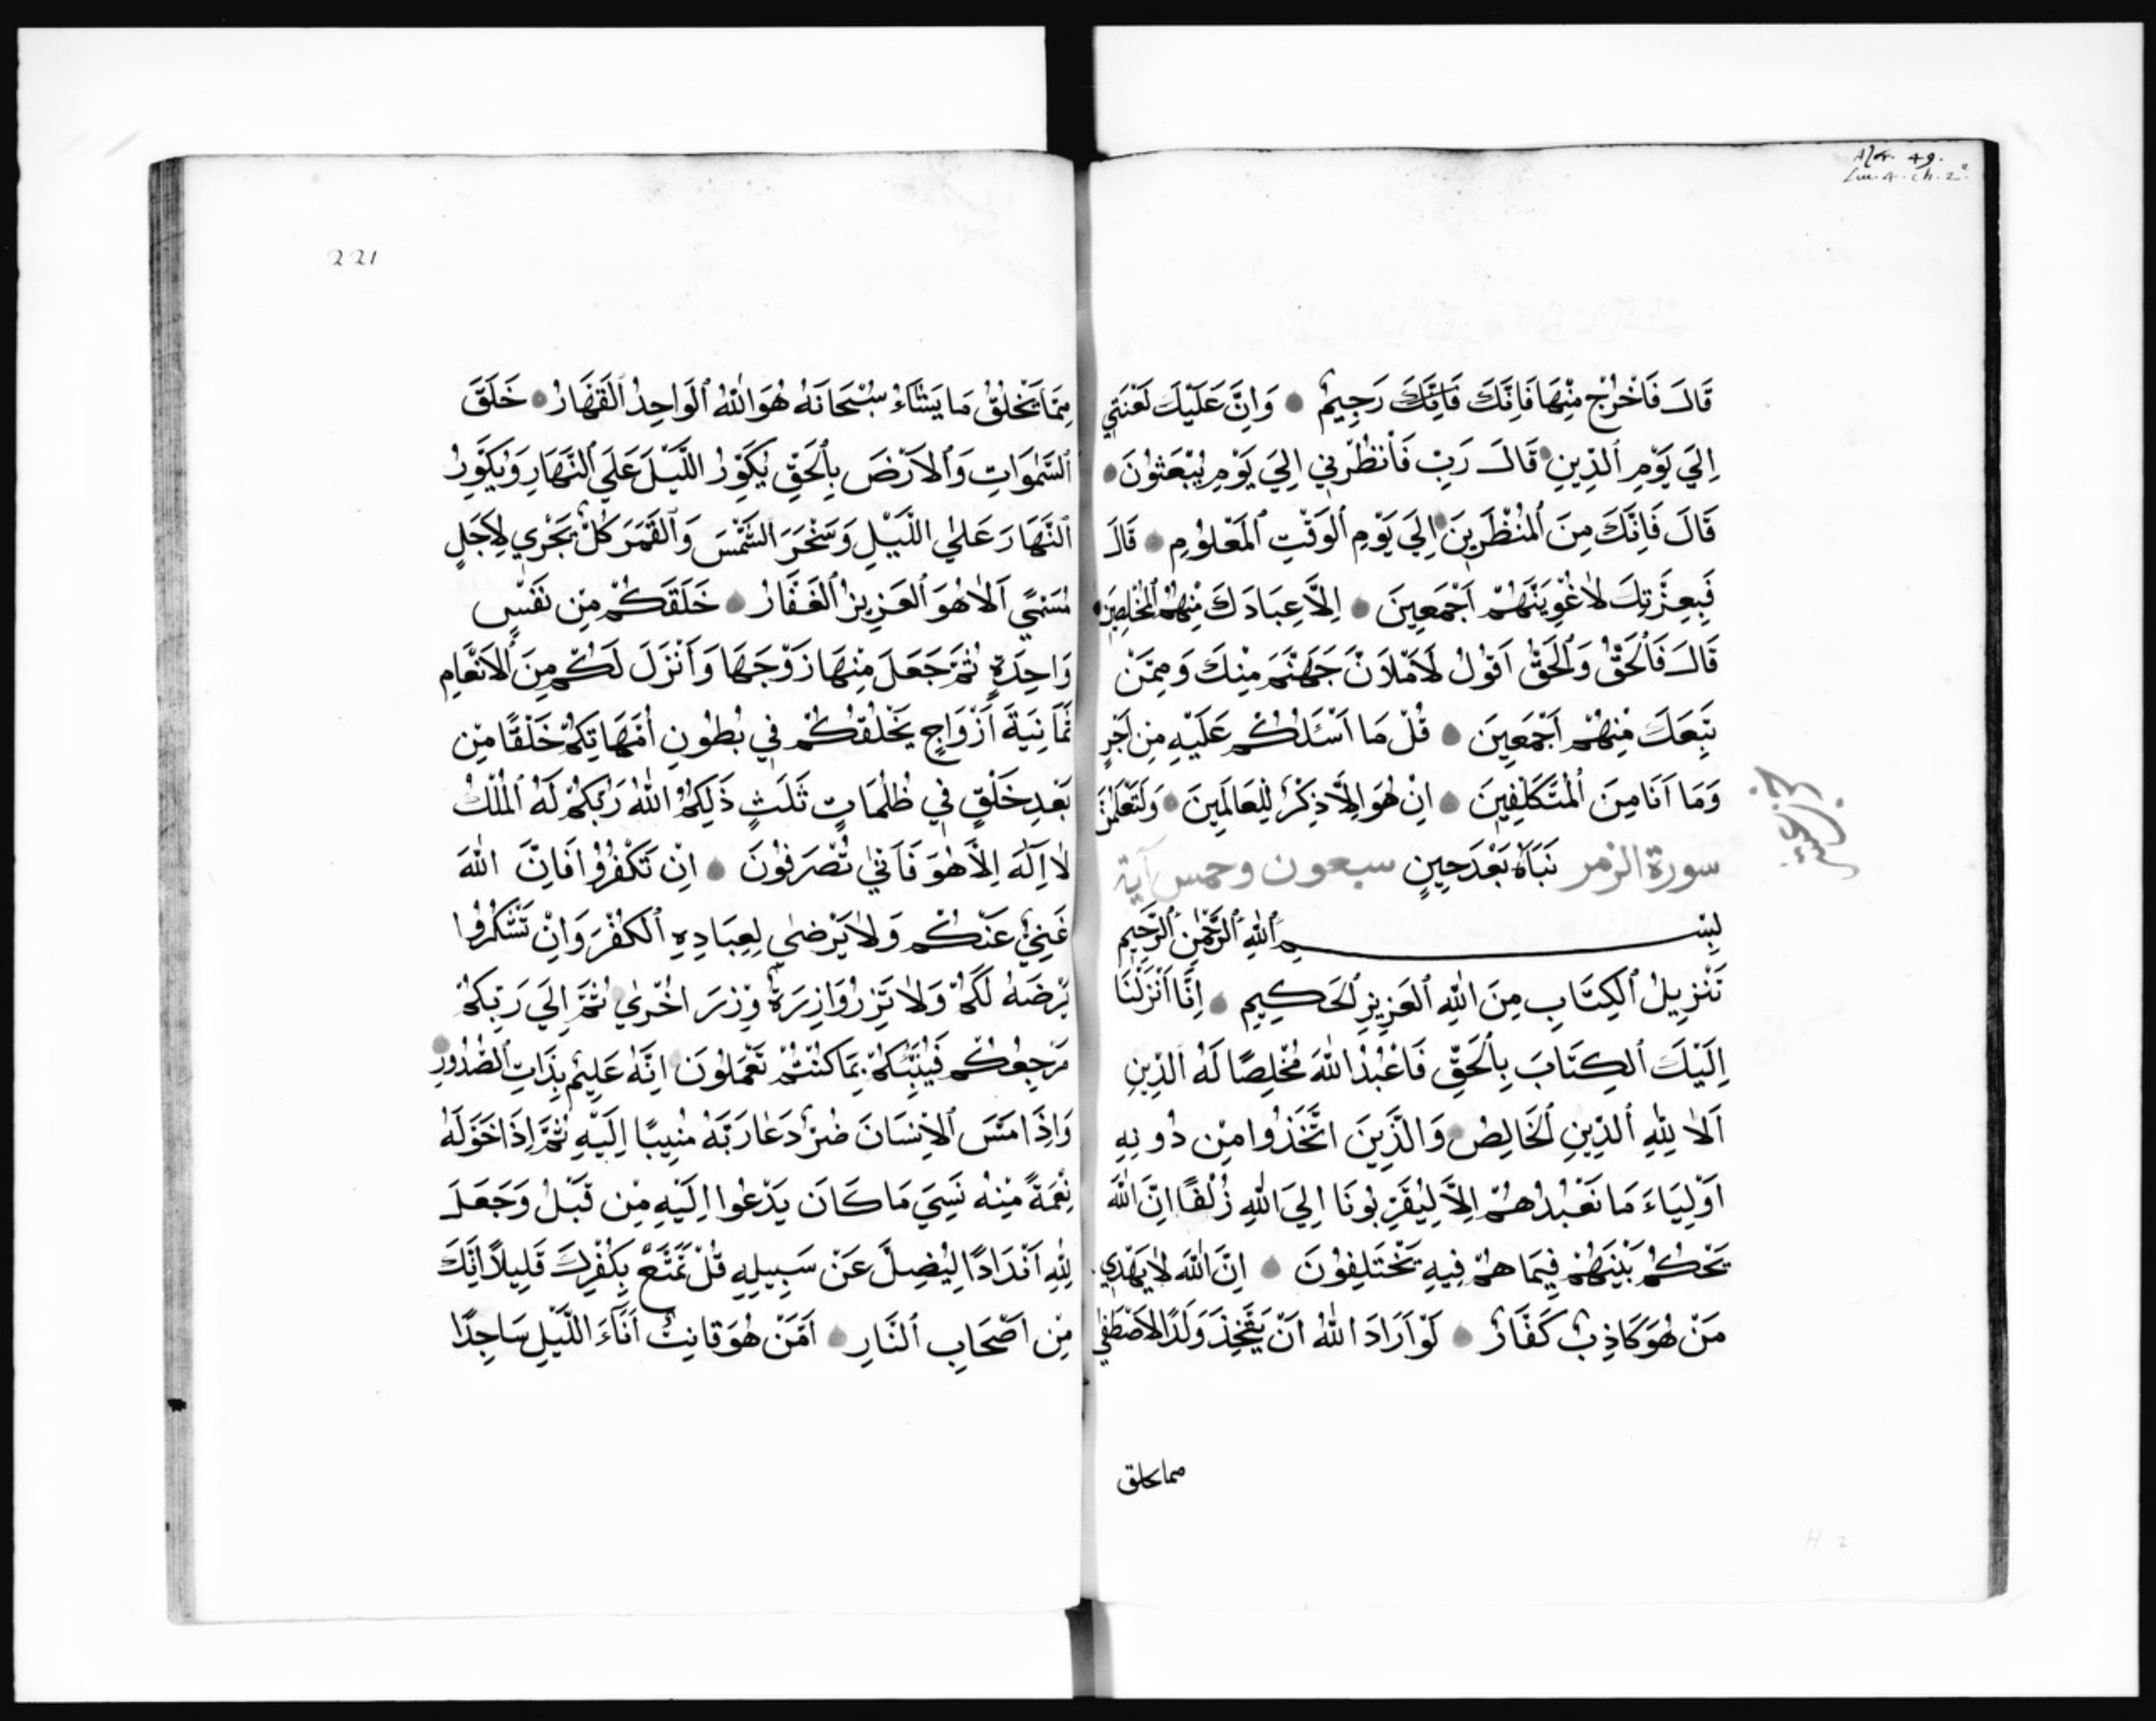 Alcr. 49.
قَالَ فَاخْرُجْ مِنْهَا فَاِنَّكَ فَاِنَّكَ رَجِيمٌ وَاِنَّ عَلَيْكَ لَعْنَتِي
اِلَي يَوْمِ ٱلدِّينِ قَالَ رَبِّ فَأَنْظُرْنِي اِلَي يَوْمِ يُبْعَثُونَ
قَالَ فَاِنَّكَ مِنَ ٱلْمُنْظَرِينَ اِلَي يَوْمِ ٱلْوَقْتِ ٱلْمَعْلُومِ قَالَ
فَبِعِزَّتِكَ لَاُغْوِيَنَّهُمْ اَجْمَعِينَ اِلَّا عِبَادَكَ مِنْهُمُ ٱلْمُخْلَصِينَ
قَالَ فَٱلْحَقُّ وَٱلْحَقُّ اَقُولُ لَأَمْلَاَنَّ جَهَنَّمَ مِنْكَ وَمِمَّنْ
تَبِعَكَ مِنْهُمْ اَجْمَعِينَ قُلْ مَا اَسْئَلُكُمْ عَلَيْهِ مِنْ اَجْرٍ
وَمَا اَنَا مِنَ ٱلْمُتَكَلِّفِينَ اِنْ هُوَ اِلَّا ذِكْرٌ لِلْعَالَمِينَ وَلَتَعْلَمُنَّ
سورة الزمر نَبَأَهُ بَعْدَ حِينٍ سبعون وخمس آية
بِسْمِ ٱللّٰهِ ٱلرَّحْمٰنِ ٱلرَّحِيمِ
تَنْزِيلُ ٱلْكِتَابِ مِنَ ٱللّٰهِ ٱلْعَزِيزِ ٱلْحَكِيمِ اِنَّا اَنْزَلْنَا
اِلَيْكَ ٱلْكِتَابَ بِٱلْحَقِّ فَاعْبُدْ ٱللّٰهَ مُخْلِصًا لَهُ ٱلدِّينِ
اَلَا لِلّٰهِ ٱلدِّينِ ٱلْخَالِصُ وَالَّذِينَ اتَّخَذُوا مِنْ دُونِهِ
اَوْلِيَاءَ مَا نَعْبُدُهُمْ اِلَّا لِيُقَرِّبُونَا اِلَي اللّٰهِ زُلْفًا اِنَّ اللّٰهَ
يَحْكُمُ بَيْنَهُمْ فِيمَا هُمْ فِيهِ يَخْتَلِفُونَ اِنَّ اللّٰهَ لَا يَهْدِي
مَنْ هُوَ كَاذِبٌ كَفَّارٌ لَوْ اَرَادَ اللّٰهُ اَنْ يَتَّخِذَ وَلَدًا لَاصْطَفٰي
مما يخلق
221
مِمَّا يَخْلُقُ مَا يَشَاءُ سُبْحَانَهُ هُوَ اللّٰهُ ٱلْوَاحِدُ ٱلْقَهَّارُ خَلَقَ
ٱلسَّمٰوَاتِ وَٱلْاَرْضَ بِٱلْحَقِّ يُكَوِّرُ اللَّيْلَ عَلَي ٱلنَّهَارِ وَيُكَوِّرُ
ٱلنَّهَارَ عَلٰي اللَّيْلِ وَسَخَّرَ ٱلشَّمْسَ وَٱلْقَمَرَ كُلٌّ يَجْرِي لِاَجَلٍ
مُسَمًّي اَلَا هُوَ ٱلْعَزِيزُ ٱلْغَفَّارُ خَلَقَكُمْ مِنْ نَفْسٍ
وَاحِدَةٍ ثُمَّ جَعَلَ مِنْهَا زَوْجَهَا وَاَنْزَلَ لَكُمْ مِنَ ٱلْاَنْعَامِ
ثَمَانِيَةَ اَزْوَاجٍ يَخْلُقُكُمْ فِي بُطُونِ اُمَّهَاتِكُمْ خَلْقًا مِنْ
بَعْدِ خَلْقٍ فِي ظُلُمَاتٍ ثَلَثٍ ذَلِكُمُ اللّٰهُ رَبُّكُمْ لَهُ ٱلْمُلْكُ
لَا اِلٰهَ اِلَّا هُوَ فَاَنّٰي تُصْرَفُونَ اِنْ تَكْفُرُوا فَاِنَّ اللّٰهَ
غَنِيٌّ عَنْكُمْ وَلَا يَرْضٰي لِعِبَادِهِ ٱلْكُفْرَ وَاِنْ تَشْكُرُوا
يَرْضَهُ لَكُمْ وَلَا تَزِرُ وَازِرَةٌ وِزْرَ اُخْرٰي ثُمَّ اِلَي رَبِّكُمْ
مَرْجِعُكُمْ فَيُنَبِّئُكُمْ بِمَا كُنْتُمْ تَعْمَلُونَ اِنَّهُ عَلِيمٌ بِذَاتِ ٱلصُّدُورِ
وَاِذَا مَسَّ ٱلْاِنْسَانَ ضُرٌّ دَعَا رَبَّهُ مُنِيبًا اِلَيْهِ ثُمَّ اِذَا خَوَّلَهُ
نِعْمَةً مِنْهُ نَسِيَ مَا كَانَ يَدْعُوا اِلَيْهِ مِنْ قَبْلُ وَجَعَلَ
لِلّٰهِ اَنْدَادًا لِيُضِلَّ عَنْ سَبِيلِهِ قُلْ تَمَتَّعْ بِكُفْرِكَ قَلِيلًا اِنَّكَ
مِنْ اَصْحَابِ ٱلنَّارِ اَمَّنْ هُوَ قَانِتٌ اَنَآءَ اللَّيْلِ سَاجِدًا